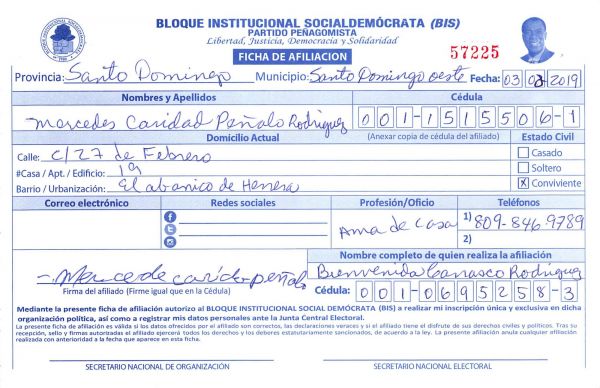 BLOQUE INSTITUCIONAL SOCIALDEMÓCRATA (BIS)
PARTIDO PEÑAGOMISTA
Libertad, Justicia, Democracia y Solidaridad
FICHA DE AFILIACION
57225
Provincia: Santo Domingo Municipio: Santo Domingo oeste Fecha: 03 02 2019
Nombres y Apellidos Cédula
Mercedes Caridad Peñalo Rodriguez 001-1515506-1
Domicilio Actual (Anexar copia de cédula del afiliado) Estado Civil
Calle: C/27 de Febrero Casado
#Casa / Apt. / Edificio: 19 Soltero
Barrio / Urbanización: El abanico de Herrera X Conviviente
Correo electrónico Redes sociales Profesión/Oficio Teléfonos
Ama de Casa 1) 809-846-9789
2)
Nombre completo de quien realiza la afiliación
Mercede caridad peñalo Bienvenida Carrasco Rodriguez
Firma del afiliado (Firme igual que en la Cédula) Cédula: 001-0695258-3
Mediante la presente ficha de afiliación autorizo al BLOQUE INSTITUCIONAL SOCIALDEMÓCRATA (BIS) a realizar mi inscripción única y exclusiva en dicha
organización política, así como a registrar mis datos personales ante la Junta Central Electoral.
La presente ficha de afiliación es válida si los datos ofrecidos por el afiliado son correctos, las declaraciones veraces y si el afiliado tiene el disfrute de sus derechos civiles y políticos. Tras su
recepción, sello y firmas autorizadas el afiliado ejercerá todos los derechos y los deberes estatutariamente sancionados, de acuerdo a la ley. La presente afiliación anula cualquier afiliación
realizada con anterioridad a la fecha que aparece en esta ficha.
SECRETARIO NACIONAL DE ORGANIZACIÓN SECRETARIO NACIONAL ELECTORAL